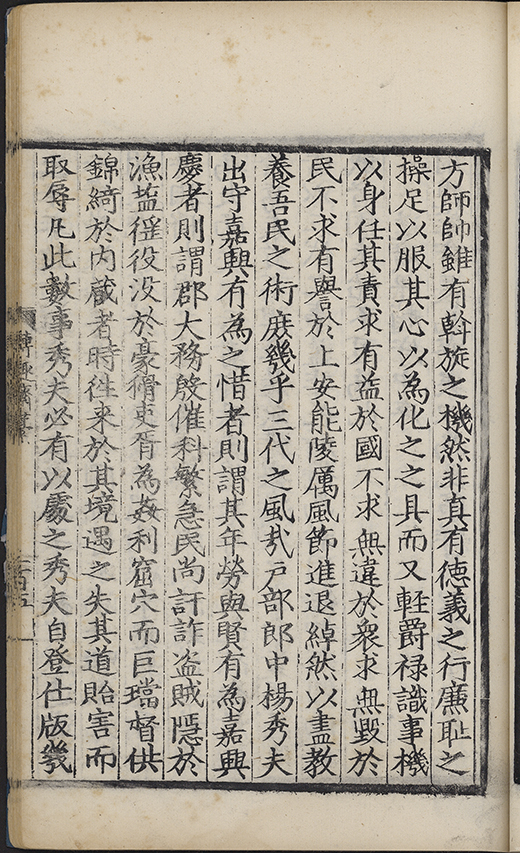 方師帥雖有斡旋之機然非真有徳義之行廉耻之
操足以服其心以為化之之具而又軽爵禄識事機
以身任其責求有益於國不求無違於衆求無毀於
民不求有譽於上安能陵厲風節進退綽然以盡教
養吾民之術庻幾乎三代之風㢤戸部郎中楊秀夫
出守嘉興有為之惜者則謂其年勞與賢有為嘉興
慶者則謂郡大務殷催科繁急民尚訐詐盗賊隠於
漁盐徭役没於豪猾吏胥為姦利窟穴而巨璫督供
錦綺於内蔵者時徃来於其境遇之失其道貽害而
取辱凡此數事秀夫必有以處之秀夫自登仕版幾